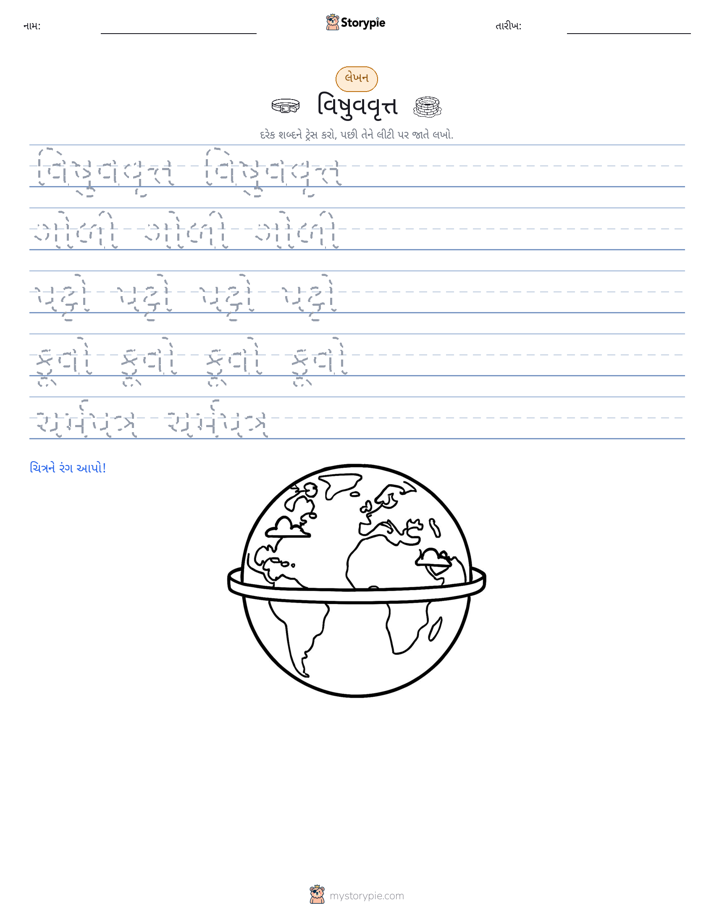 નામ:
Storypie
તારીખ:
લેખન
વિષુવવૃત્ત
દરેક શબ્દને ટ્રેસ કરો, પછી તેને લીટી પર જાતે લખો.
વિષુવવૃત્ત વિષુવવૃત્ત
ગોળી ગોળી ગોળી
પટ્ટો પટ્ટો પટ્ટો પટ્ટો
કૂવો કૂવો કૂવો કૂવો
ચર્મપત્ર ચર્મપત્ર
ચિત્રને રંગ આપો!
mystorypie.com